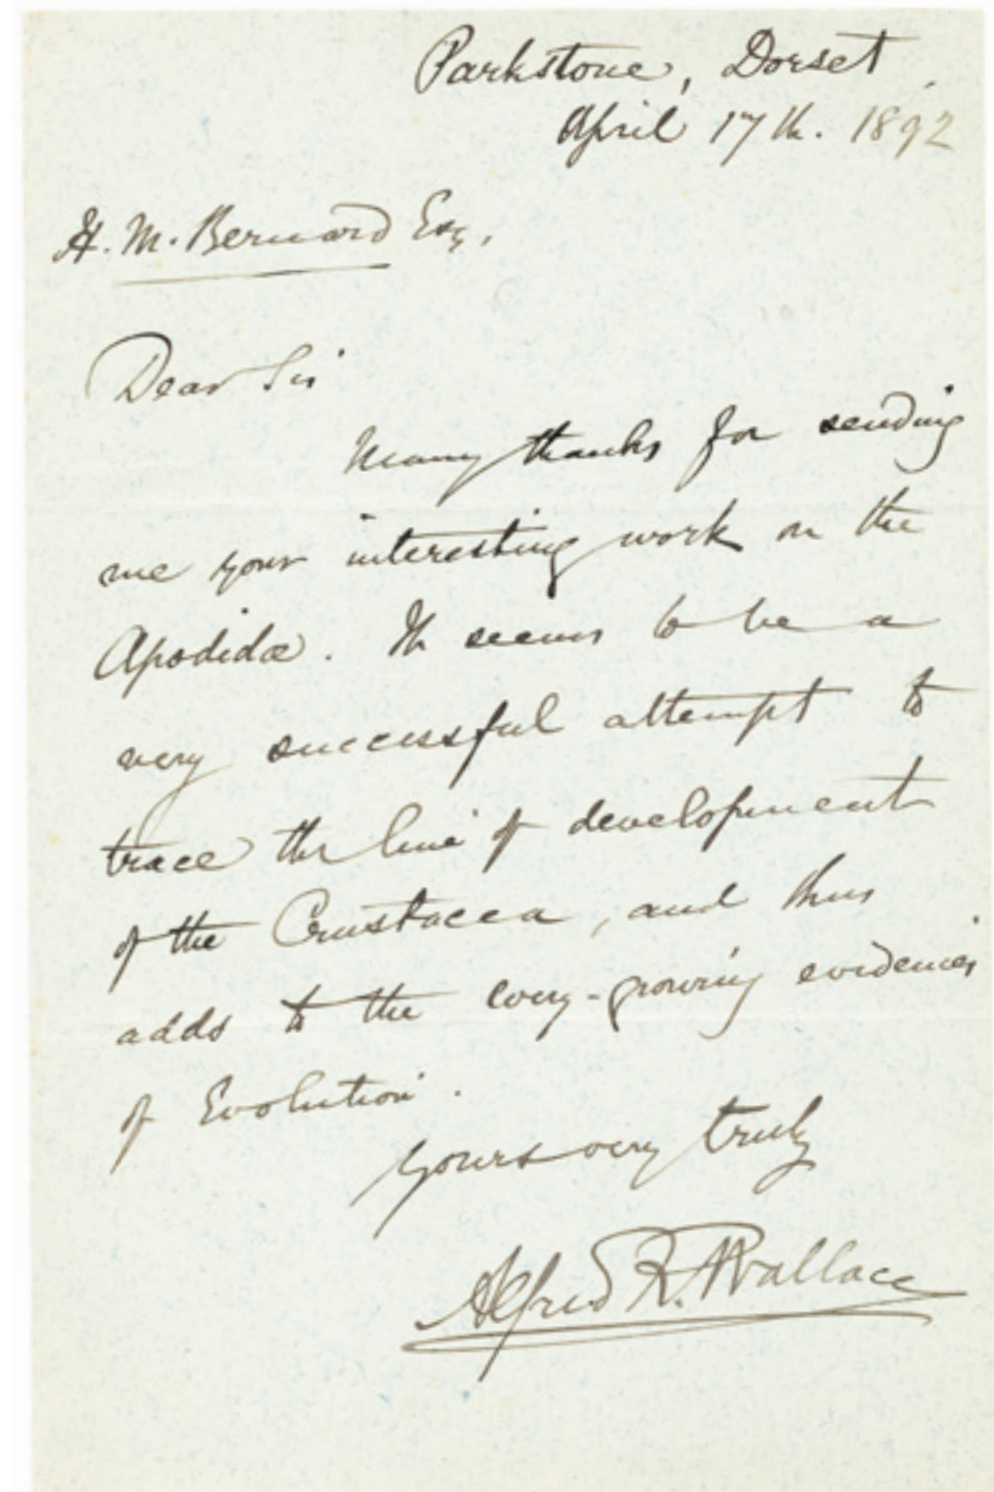 Parkstone, Dorset.
April 17th. 1892
H. M. Bernard Esq,
Dear Sir
Many thanks for sending
me your interesting work on the
Apodidæ. It seems to be a
very successful attempt to
trace the line of development
of the Crustacea, and thus
adds to the every-growing evidences
of Evolution.
Yours very truly
Alfred R. Wallace